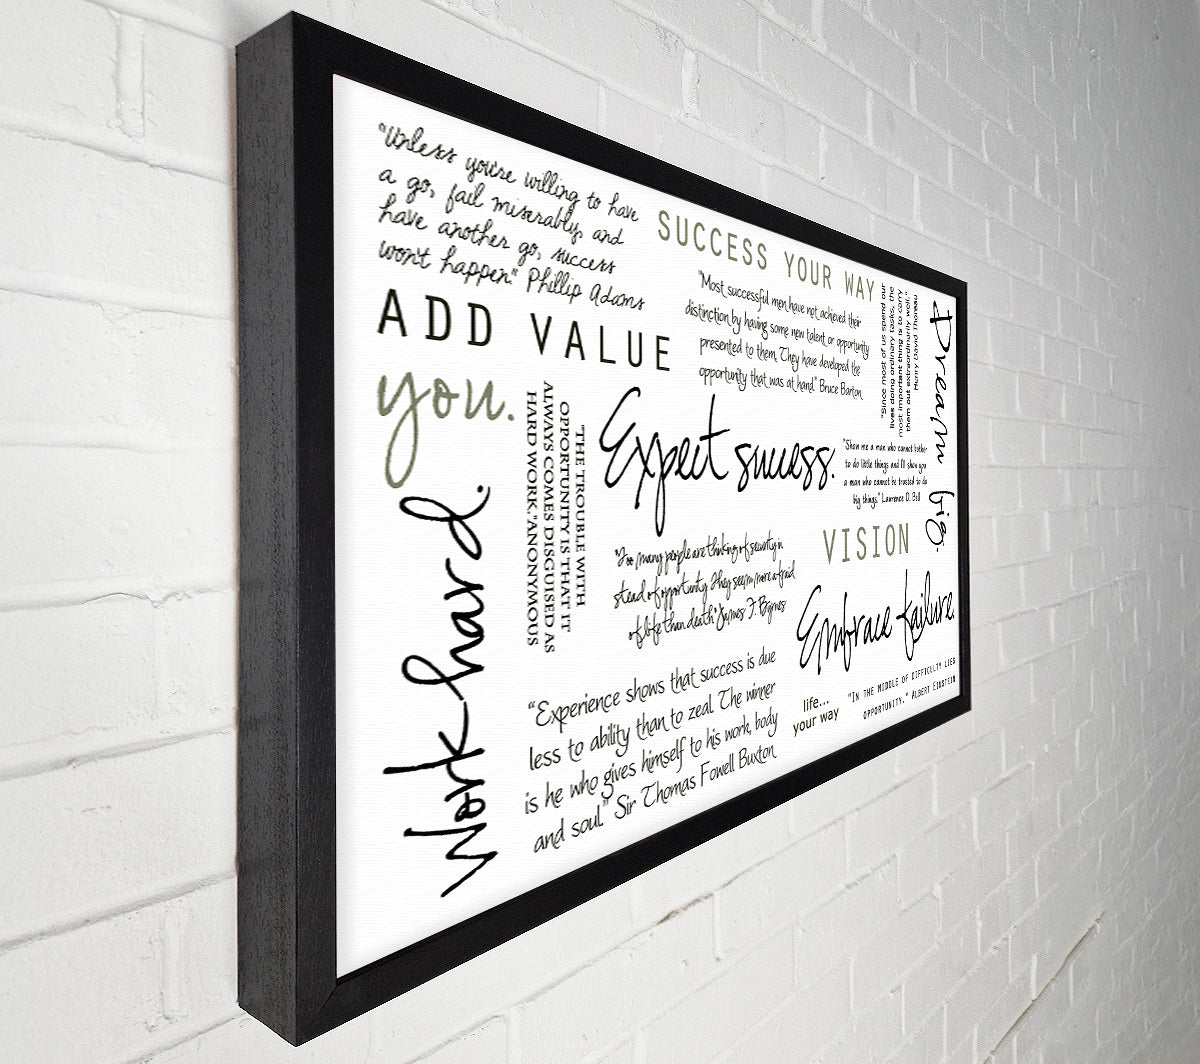 "Unless you're willing to have
a go, fail miserably, and
have another go, success
won't happen." Phillip Adams
SUCCESS YOUR WAY
"Most successful men have not achieved their
distinction by having some new talent or opportunity
presented to them. They have developed the
opportunity that was at hand." Bruce Barton
"Since most of us spend our
lives doing ordinary tasks, the
most important thing is to carry
them out extraordinarily well."
Henry David Thoreau
Dream big.
ADD VALUE
you.
"THE TROUBLE WITH
OPPORTUNITY IS THAT IT
ALWAYS COMES DISGUISED AS
HARD WORK." ANONYMOUS
Expect success.
"Show me a man who cannot bother
to do little things and I'll show you
a man who cannot be trusted to do
big things." Lawrence D. Bell
Work hard.
VISION
"Too many people are thinking of security in
stead of opportunity. They seem more afraid
of life than death" James F. Byrnes
Embrace failure.
"Experience shows that success is due
less to ability than to zeal. The winner
is he who gives himself to his work, body
and soul." Sir Thomas Fowell Buxton
life...
your way
"IN THE MIDDLE OF DIFFICULTY LIES
OPPORTUNITY." ALBERT EINSTEIN